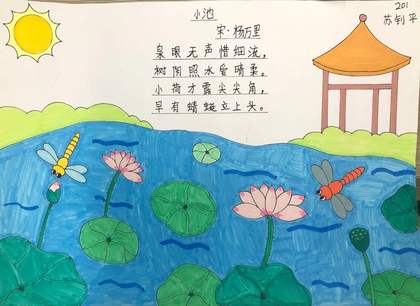 小池
201
苏钊平
宋·杨万里
泉眼无声惜细流，
树阴照水爱晴柔。
小荷才露尖尖角，
早有蜻蜓立上头。